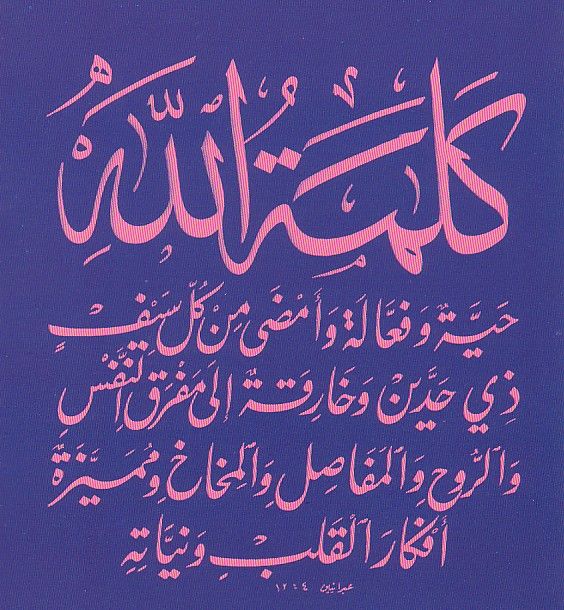 كَلِمَةُ اللّٰهِ
حَيَّةٌ وَفَعَّالَةٌ وَأَمْضَى مِنْ كُلِّ سَيْفٍ
ذِي حَدَّيْنِ وَخَارِقَةٌ إِلَى مَفْرَقِ النَّفْسِ
وَٱلرُّوحِ وَٱلمَفَاصِلِ وَٱلمِخَاخِ وَمُمَيِّزَةٌ
أَفْكَارَ ٱلْقَلْبِ وَنِيَّاتِهِ
عبرانيين ٤ : ١٢